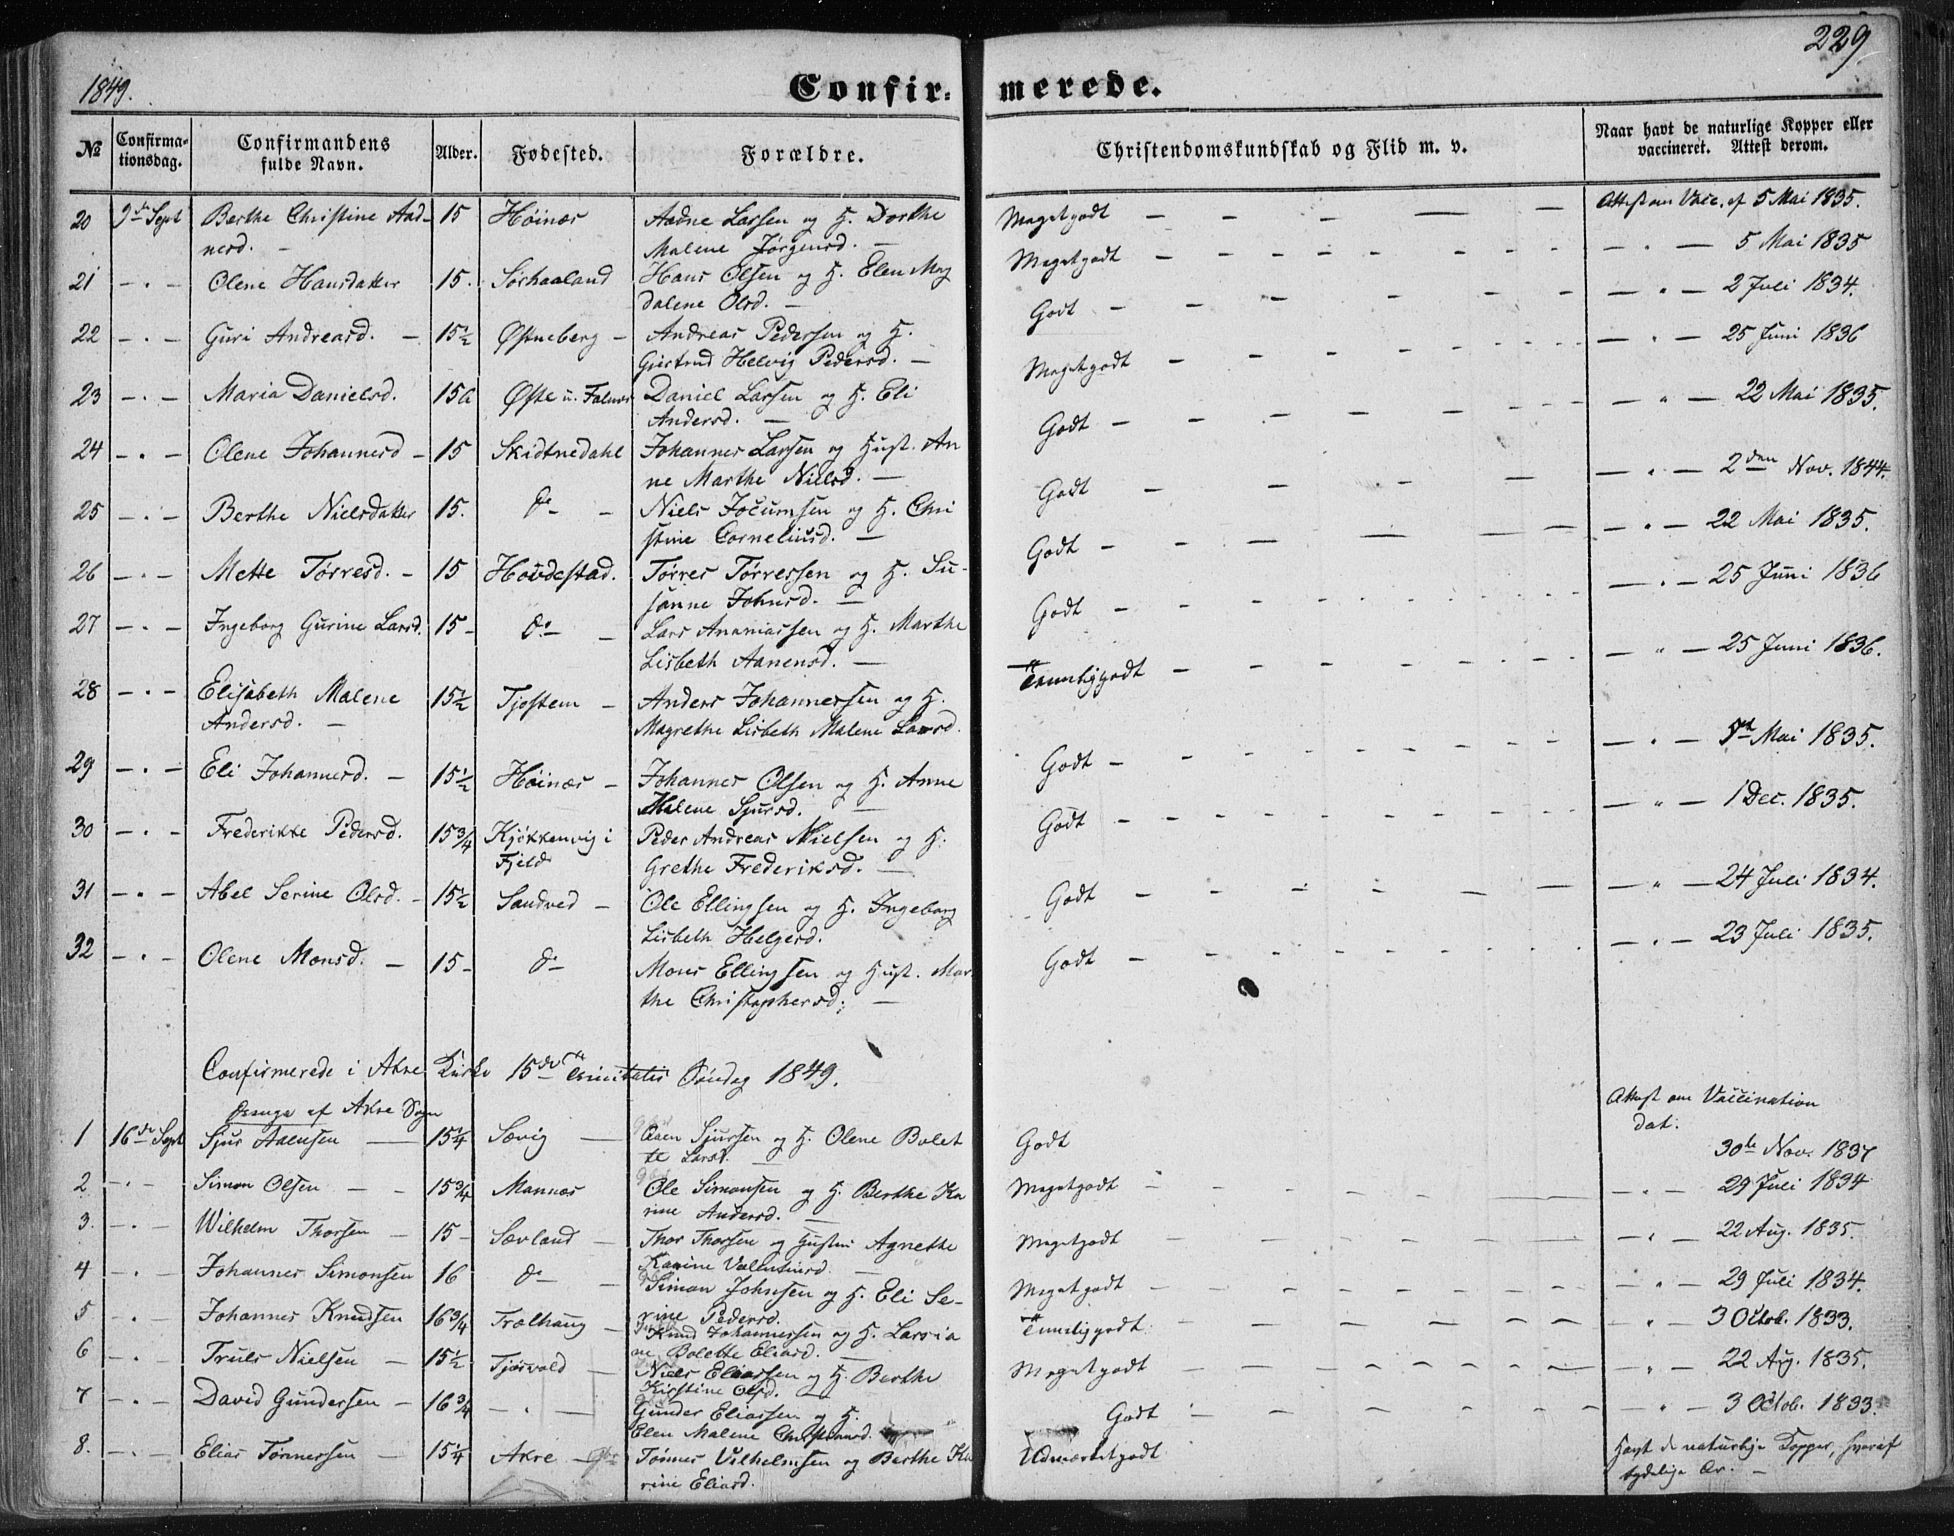 229
1849.
Confir- merede.
№ Confirma-tionsdag. Confirmandens fulde Navn. Alder. Fødested. Forældre. Christendomskundskab og Flid m. v. Naar havt de naturlige Kopper eller vaccineret. Attest derom.
20 9de Sept Berthe Christine Aad- 15 Høinæs Aadne Larsen og H. Dorthe Megetgodt — — — — — Attest om Vacc. af 5 Mai 1835.
nesd. — Malene Jørgensd. —
21 — " — Olene Hansdatter 15. Sørhaaland Hans Olsen og H. Elen Mag Megetgodt — — — — — — " — 5 Mai 1835
dalene Olsd. —
22 — " — Guri Andreasd. — 15½ Østneberg — Andreas Pedersen og H. Godt — — — — — — " — 2 Juli 1834.
Giertrud Helvig Pedersd. —
23 — " — Maria Danielsd. 15 Daniel Larsen og H. Eli Megetgodt — — — — — — " — 25 Juni 1836
Andersd. —
24 — " — Olene Johannesd — 15 Skidtnedahl Johannes Larsen og Hust. An Godt — — — — — — " — 22 Mai 1835.
ne Marthe Nielsd. —
25 — " — Berthe Nielsdatter 15. do — Niels Jocumsen og H. Chri Godt — — — — — — " — 2den Nov. 1844.
stine Corneliusd. —
26 — " — Mette Tørresd. — 15 Houdestad. Tørres Tørressen og H. Su- Godt — — — — — — " — 22 Mai 1835.
sanne Johnsd. —
27 — " — Ingeborg Gurine Larsd. 15 — do — Lars Ananiassen og H. Marthe Godt — — — — — — " — 25 Juni 1836
Lisbeth Aanensd. —
28 — " — Elisabeth Malene 15½ Tjøstem — Anders Johannessen og H. Temmeliggodt — — — — — — " — 25 Juni 1836.
Andersd. — Magrethe Lisbeth Malene Larsd.
29 — " — Eli Johannesd. — 15½ Høinæs — Johannes Olsen og H. Anne Godt — — — — — — " — Mai 1835.
Malene Sjursd. —
30 — " — Frederikke Pedersd. 15¾ Kjøkkenvig i Peder Andreas Nielsen og H. Godt — — — — — — " — 1 Dec. 1835.
Fjeld Grethe Frederiksd. —
31 — " — Abel Serine Olsd. — 15½ Sandved — Ole Ellingsen og H. Ingeborg Godt — — — — — — " — 24 Juli 1834.
Lisbeth Helgesd.
32 — " — Olene Monsd. — 15 — do — Mons Ellingsen og Hust. Mar Godt — — — — — — " — 23 Juli 1835.
the Christophersd. —
Confirmerede i Akre Kirke 15de Trinitatis Søndag 1849.
Drenge af Akre Sogn Attest om Vaccination
dat.
1 16de Sept Sjur Aanensen — 15¼ Sævig — Aaen Sjursen og H. Olene Bolet Godt 30te Nov. 1837
te Larsd. —
2 — " — Simon Olsen — — 15¾ Mannæs Ole Simonsen og H. Berthe Ka Megetgodt — — — — — — " — 29 Juli 1834
rine Andersd. —
3. — " — Wilhelm Thorsen — 15 — Sævland — Thor Thorsen og Hustru Agnethe Megetgodt — — — — — — " — 22 Aug. 1835.
Karine Valentinsd. —
4 — " — Johannes Simonsen 16 do — Simon Johnsen og H. Eli Se- Megetgodt — — — — — — " — 29 Juli 1834.
rine Pedersd.
5 — " — Johannes Knudsen 16¾ Trælhaug — Knud Johannessen og H. Larsia Temmeliggodt — — — — — — " — 3 Octob. 1833.
ne Bolette Eliasd. —
6 — " — Truls Nielsen — 15½ Tjøsvold — Niels Eliassen og H. Berthe Megetgodt — — — — — — " — 22 Aug. 1835.
Kirstine Olsd. —
7 — " — David Gundersen — 16¾ — " — Gunder Eliassen og H. Godt — — — — — — " — 3 Octob. 1833.
Elen Malene Christiansd.
8. — " — Elias Tønnessen — 15¼ Akre — Tønnes Vilhelmsen og Berthe Ka Udmærketgodt havt de naturlige Kopper, hvoraf
rine Eliasd. tydelige Ar. —